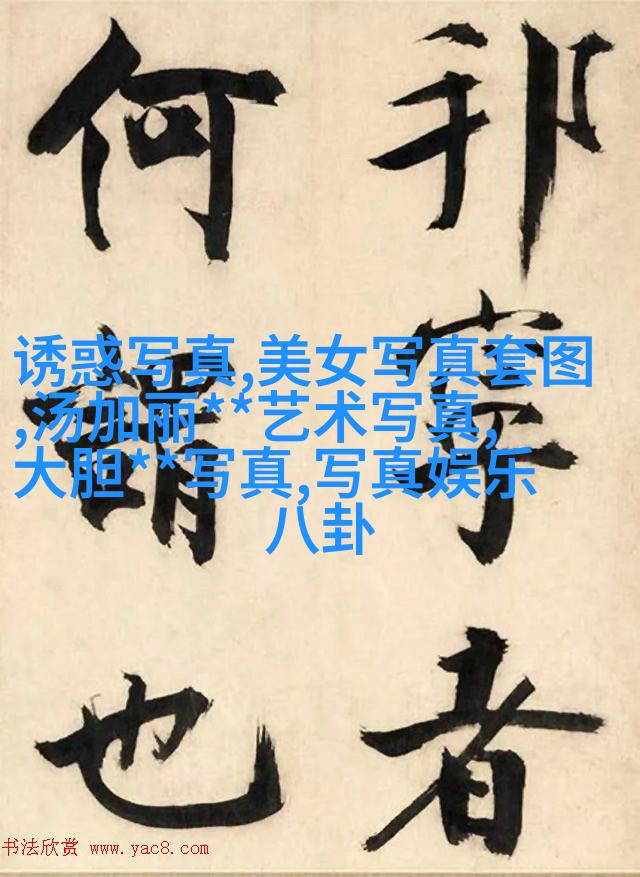 者
何謂也
诱惑写真,美女写真套图
,汤加丽**艺术写真,
大胆**写真,写真娱乐
八卦
书法欣赏 www.yac8.com